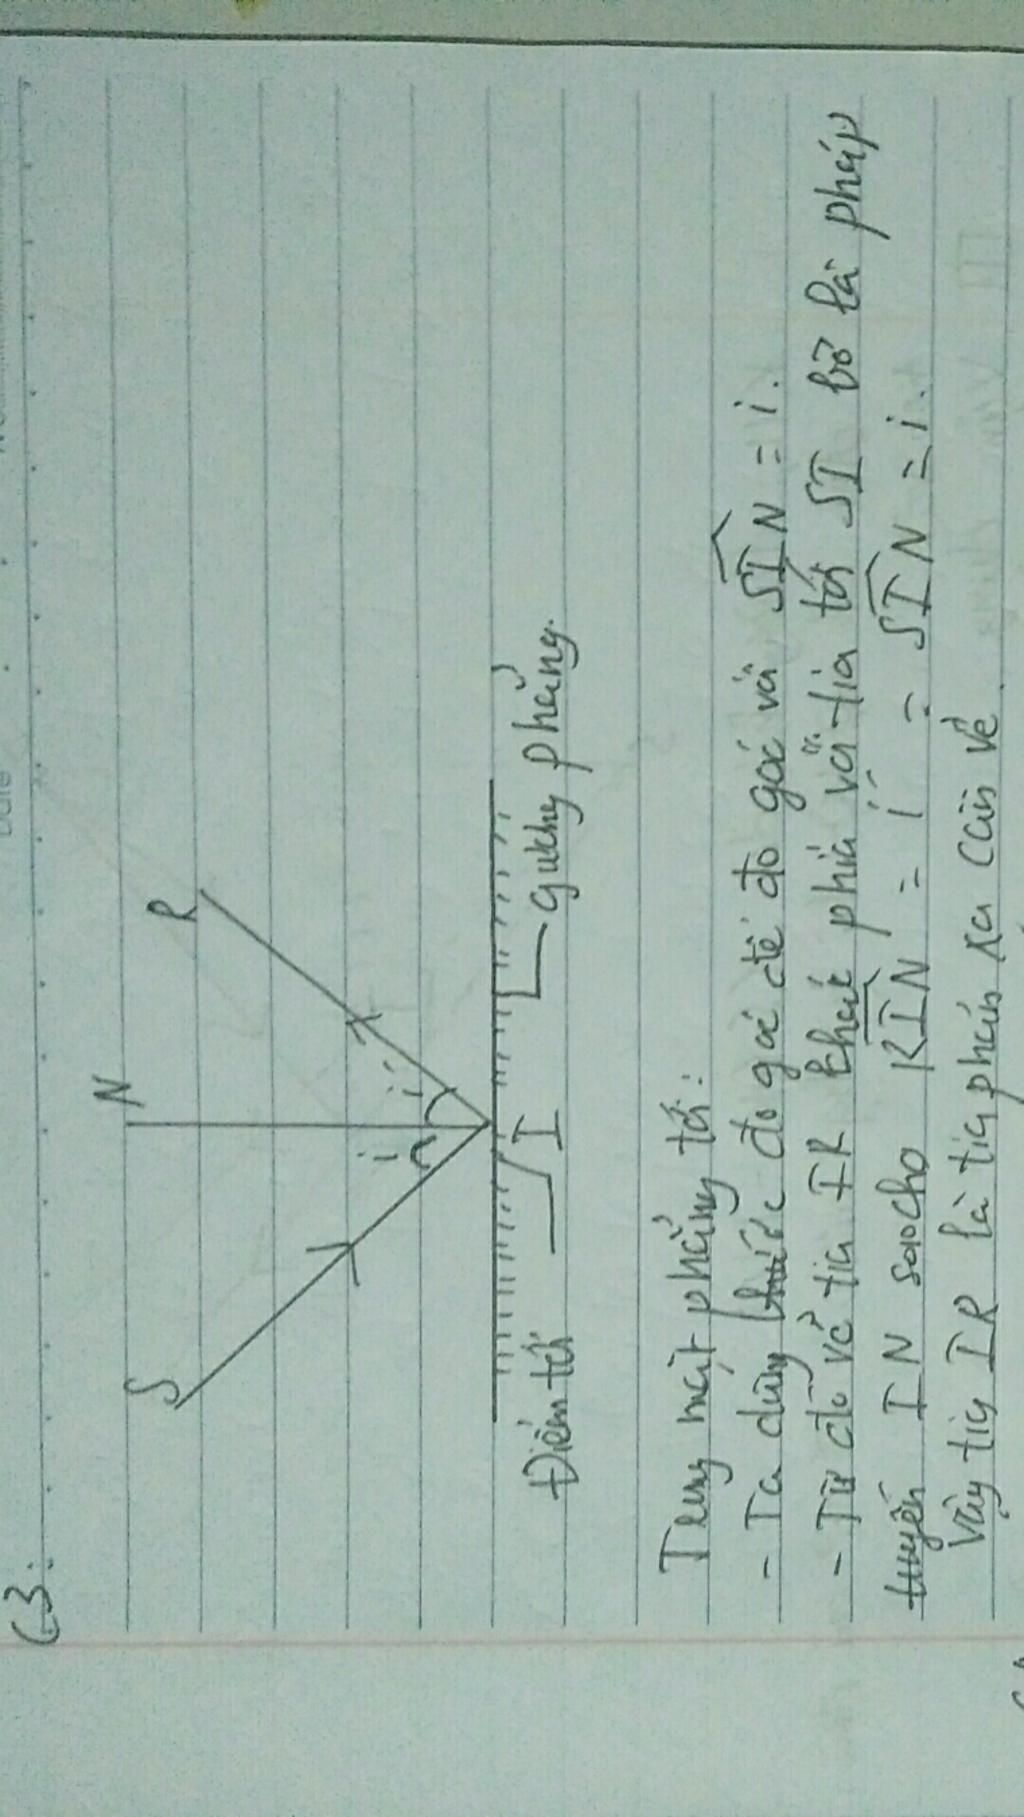 C3:
N
S
R
i
i'
I
Điểm tới
gương phẳng.
Trong mặt phẳng tới:
- Ta dùng thước đo góc để đo góc và SIN = i.
- Từ đó vẽ tia IR khác phía với tia tới SI bờ là pháp
tuyến IN sao cho RIN = i' = SIN = i.
Vậy tia IR là tia phản xạ cần vẽ.